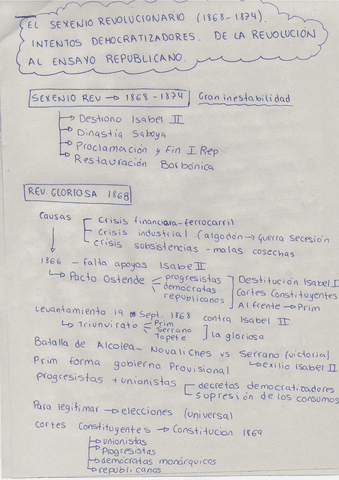 EL SEXENIO REVOLUCIONARIO (1868-1874).
INTENTOS DEMOCRATIZADORES. DE LA REVOLUCIÓN
AL ENSAYO REPUBLICANO.
SEXENIO REV → 1868-1874 Gran inestabilidad
Destrono Isabel II
Dinastía Saboya
Proclamación y Fin I Rep
Restauración Borbónica
REV. GLORIOSA 1868
Causas
Crisis financiera-ferrocarril
Crisis industrial (algodón → Guerra Secesión
Crisis subsistencias - malas cosechas
1866 - falta apoyos Isabel II
Pacto Ostende
progresistas
demócratas
republicanos
Destitución Isabel I
Cortes Constituyentes
Al frente → Prim
Levantamiento 19 Sept. 1868 contra Isabel II
Triunvirato
Prim
Serrano
Topete
la gloriosa
Batalla de Alcolea - Novaliches vs Serrano (victoria)
exilio Isabel II
Prim forma gobierno Provisional
progresistas + unionistas
decretos democratizadores
supresión de los consumos
Para legitimar → elecciones (universal
Cortes Constituyentes → Constitución 1869
unionistas
Progresistas
demócratas monárquicos
republicanos